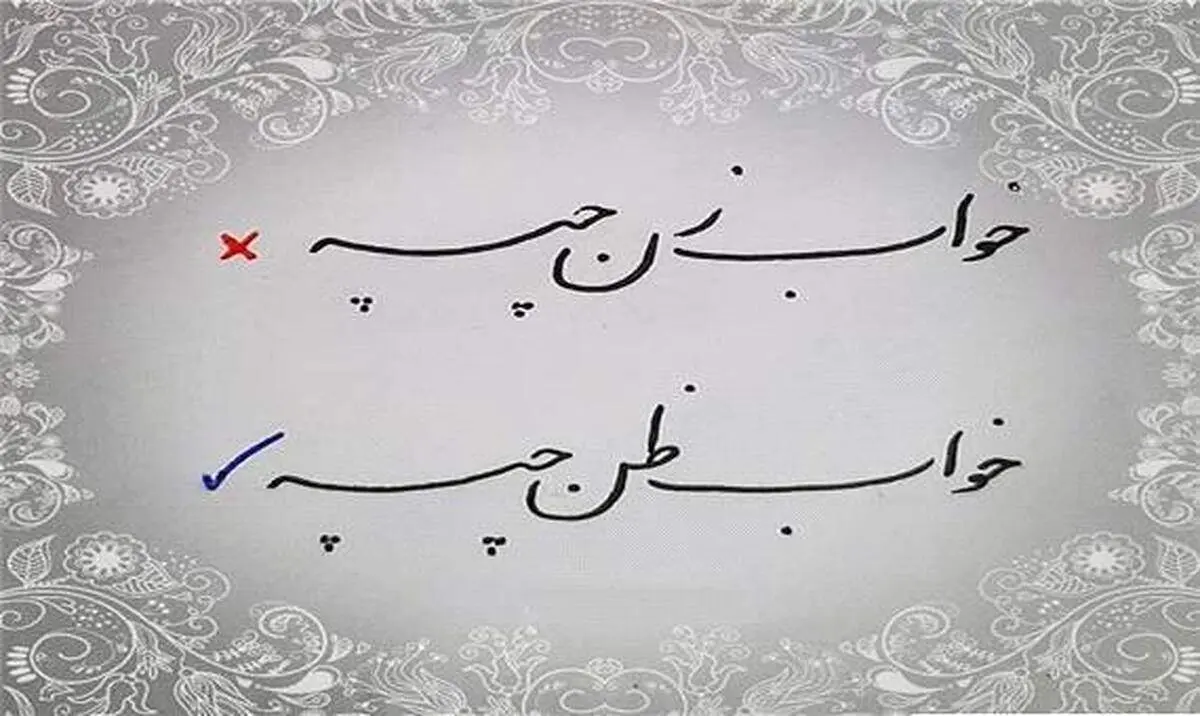 خواب زن چپه
خواب ظن چپه